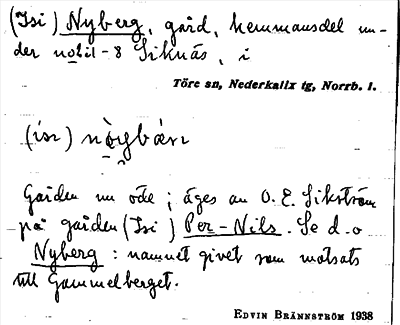 (Isi) Nyberg, gård, hemmansdel un-
der notil-8 Siknäs, i
Töre sn, Nederkalix tg, Norrb. l.
Gården nu öde; äges av O. E. Sikström
på gården (Isi) Per-Nils. Se d.o
Nyberg: namnet givet som motsats
till Gammelberget.
EDVIN BRÄNNSTRÖM 1938